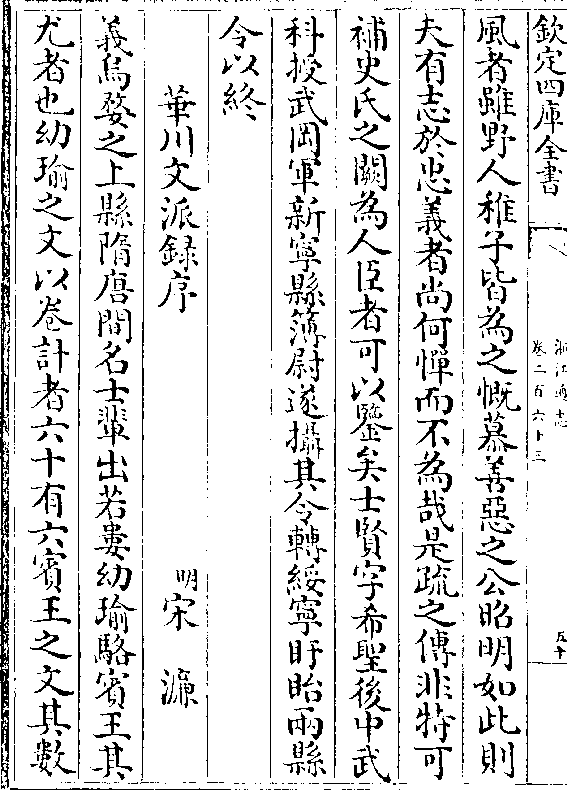 欽定四庫全書
浙江通志
卷二百六十三
五十
風者雖野人稚子皆為之慨慕善惡之公昭明如此則
夫有志於忠義者尚何憚而不為哉是疏之傳非特可
補史氏之闕為人臣者可以鑒矣士賢字希聖後中武
科授武岡軍新寧縣簿尉遂攝其令轉綏寧盱眙兩縣
令以終
華川文派録序
明宋濂
義烏婺之上縣隋唐間名士輩出若婁幼瑜駱賓王其
尤者也幼瑜之文以卷計者六十有六賓王之文其數